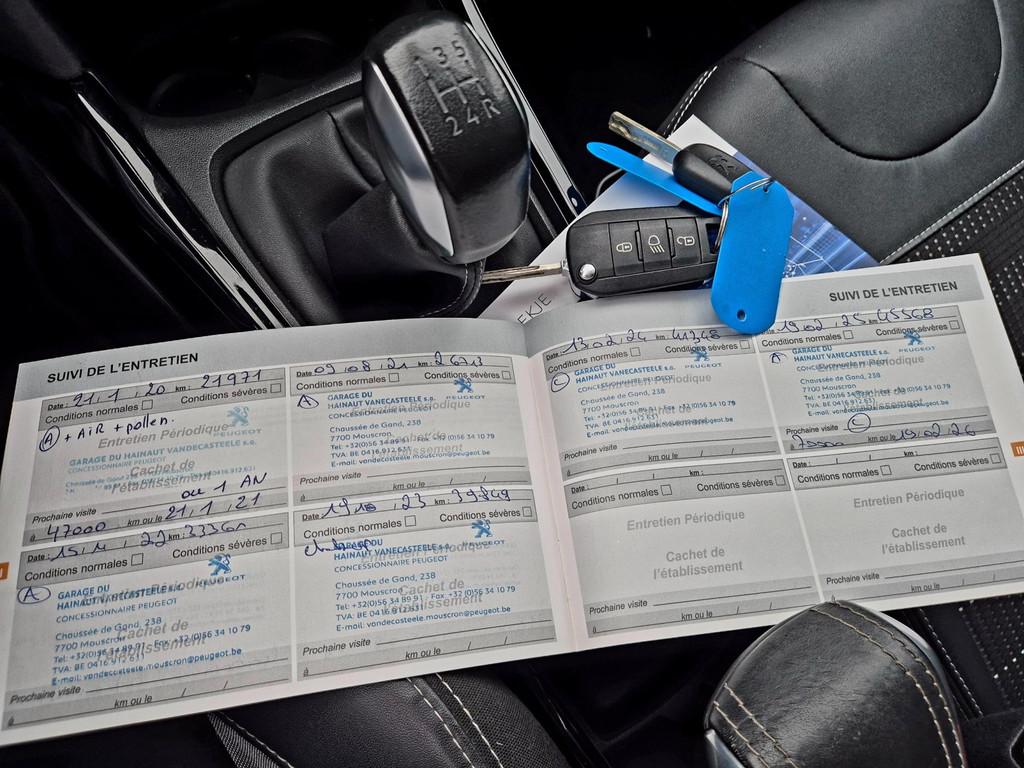 1 3 5
2 4 R
EKJE
SUIVI DE L'ENTRETIEN
Date : 21, 1, 20 km : 21971
Conditions normales Conditions sévères
(A) + AiR + pollen.
Entretien Périodique
PEUGEOT
GARAGE DU HAINAUT VANECASTEELE s.a.
CONCESSIONNAIRE PEUGEOT
Cachet de
l'établissement
ou 1 AN
Prochaine visite
à 47000 km ou le 21, 1, 21
Date : 09, 08, 21 km :
Conditions normales Conditions sévères
(A) GARAGE DU
HAINAUT VANECASTEELE s.a.
CONCESSIONNAIRE PEUGEOT
Entretien Périodique
Chaussée de Gand, 238
7700 Mouscron
Cachet de
Tel: +32(0)56 34 89 91 - Fax +32(0)56 34 10 79
TVA: BE 0416.912.631
l'établissement
E-mail: vandecasteele.mouscron@peugeot.be
Prochaine visite
à km ou le / /
Date : 15, 4, 22 km :
Conditions normales Conditions sévères
PEUGEOT
(A) GARAGE DU
HAINAUT VANECASTEELE s.a.
CONCESSIONNAIRE PEUGEOT
Entretien Périodique
Chaussée de Gand, 238
7700 Mouscron
Cachet de
Tel: +32(0)56 34 89 91 - Fax +32(0)56 34 10 79
l'établissement
TVA: BE 0416.912.631
E-mail: vandecasteele.mouscron@peugeot.be
Prochaine visite
à km ou le / /
Date : 19, 10, 23 km : 39849
Conditions normales Conditions sévères
GARAGE DU
HAINAUT VANECASTEELE s.a.
CONCESSIONNAIRE PEUGEOT
Entretien Périodique
Chaussée de Gand, 238
7700 Mouscron
Cachet de
Tel: +32(0)56 34 89 91 - Fax +32(0)56 34 10 79
l'établissement
TVA: BE 0416.912.631
E-mail: vandecasteele.mouscron@peugeot.be
Prochaine visite
à km ou le / /
SUIVI DE L'ENTRETIEN
Date : 13, 02, 24 km : 41348
Conditions normales Conditions sévères
(C) GARAGE DU
HAINAUT VANECASTEELE s.a.
CONCESSIONNAIRE PEUGEOT
Entretien Périodique
Chaussée de Gand, 238
7700 Mouscron
Cachet de
Tel: +32(0)56 34 89 91 - Fax +32(0)56 34 10 79
TVA: BE 0416.912.631
l'établissement
E-mail: vandecasteele.mouscron@peugeot.be
Prochaine visite
à km ou le / /
Date : 19, 02, 25 km : 45568
Conditions normales Conditions sévères
PEUGEOT
(A) GARAGE DU
HAINAUT VANECASTEELE s.a.
CONCESSIONNAIRE PEUGEOT
Entretien Périodique
Chaussée de Gand, 238
7700 Mouscron
Cachet de
Tel: +32(0)56 34 89 91 - Fax +32(0)56 34 10 79
TVA: BE 0416.912.631
l'établissement
E-mail: vandecasteele.mouscron@peugeot.be
Prochaine visite (C)
à km ou le 19, 02, 26
Date : / / km :
Conditions normales Conditions sévères
Entretien Périodique
Cachet de
l'établissement
Prochaine visite
à km ou le / /
Date : / / km :
Conditions normales Conditions sévères
Entretien Périodique
Cachet de
l'établissement
Prochaine visite
à km ou le / /
III